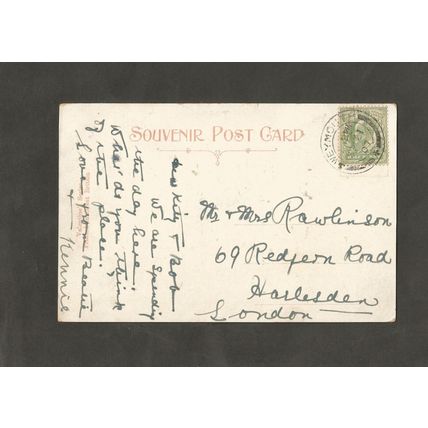 SOUVENIR POST CARD
WEYMOUTH
Kitty & Bob
We are spending
the day here.
What do you think
of the place.
Love from Beatie
& Kennie
Mr & Mrs Rawlinson
69 Redfern Road
Harlesden
London